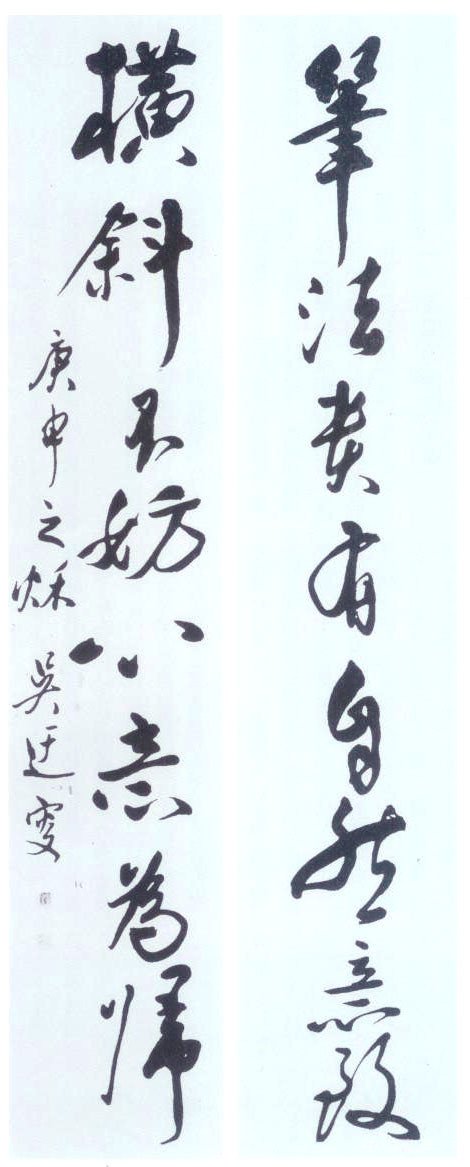 筆法貴有自然意致
橫斜不妨以意為歸
庚申之秌 吳迂叟